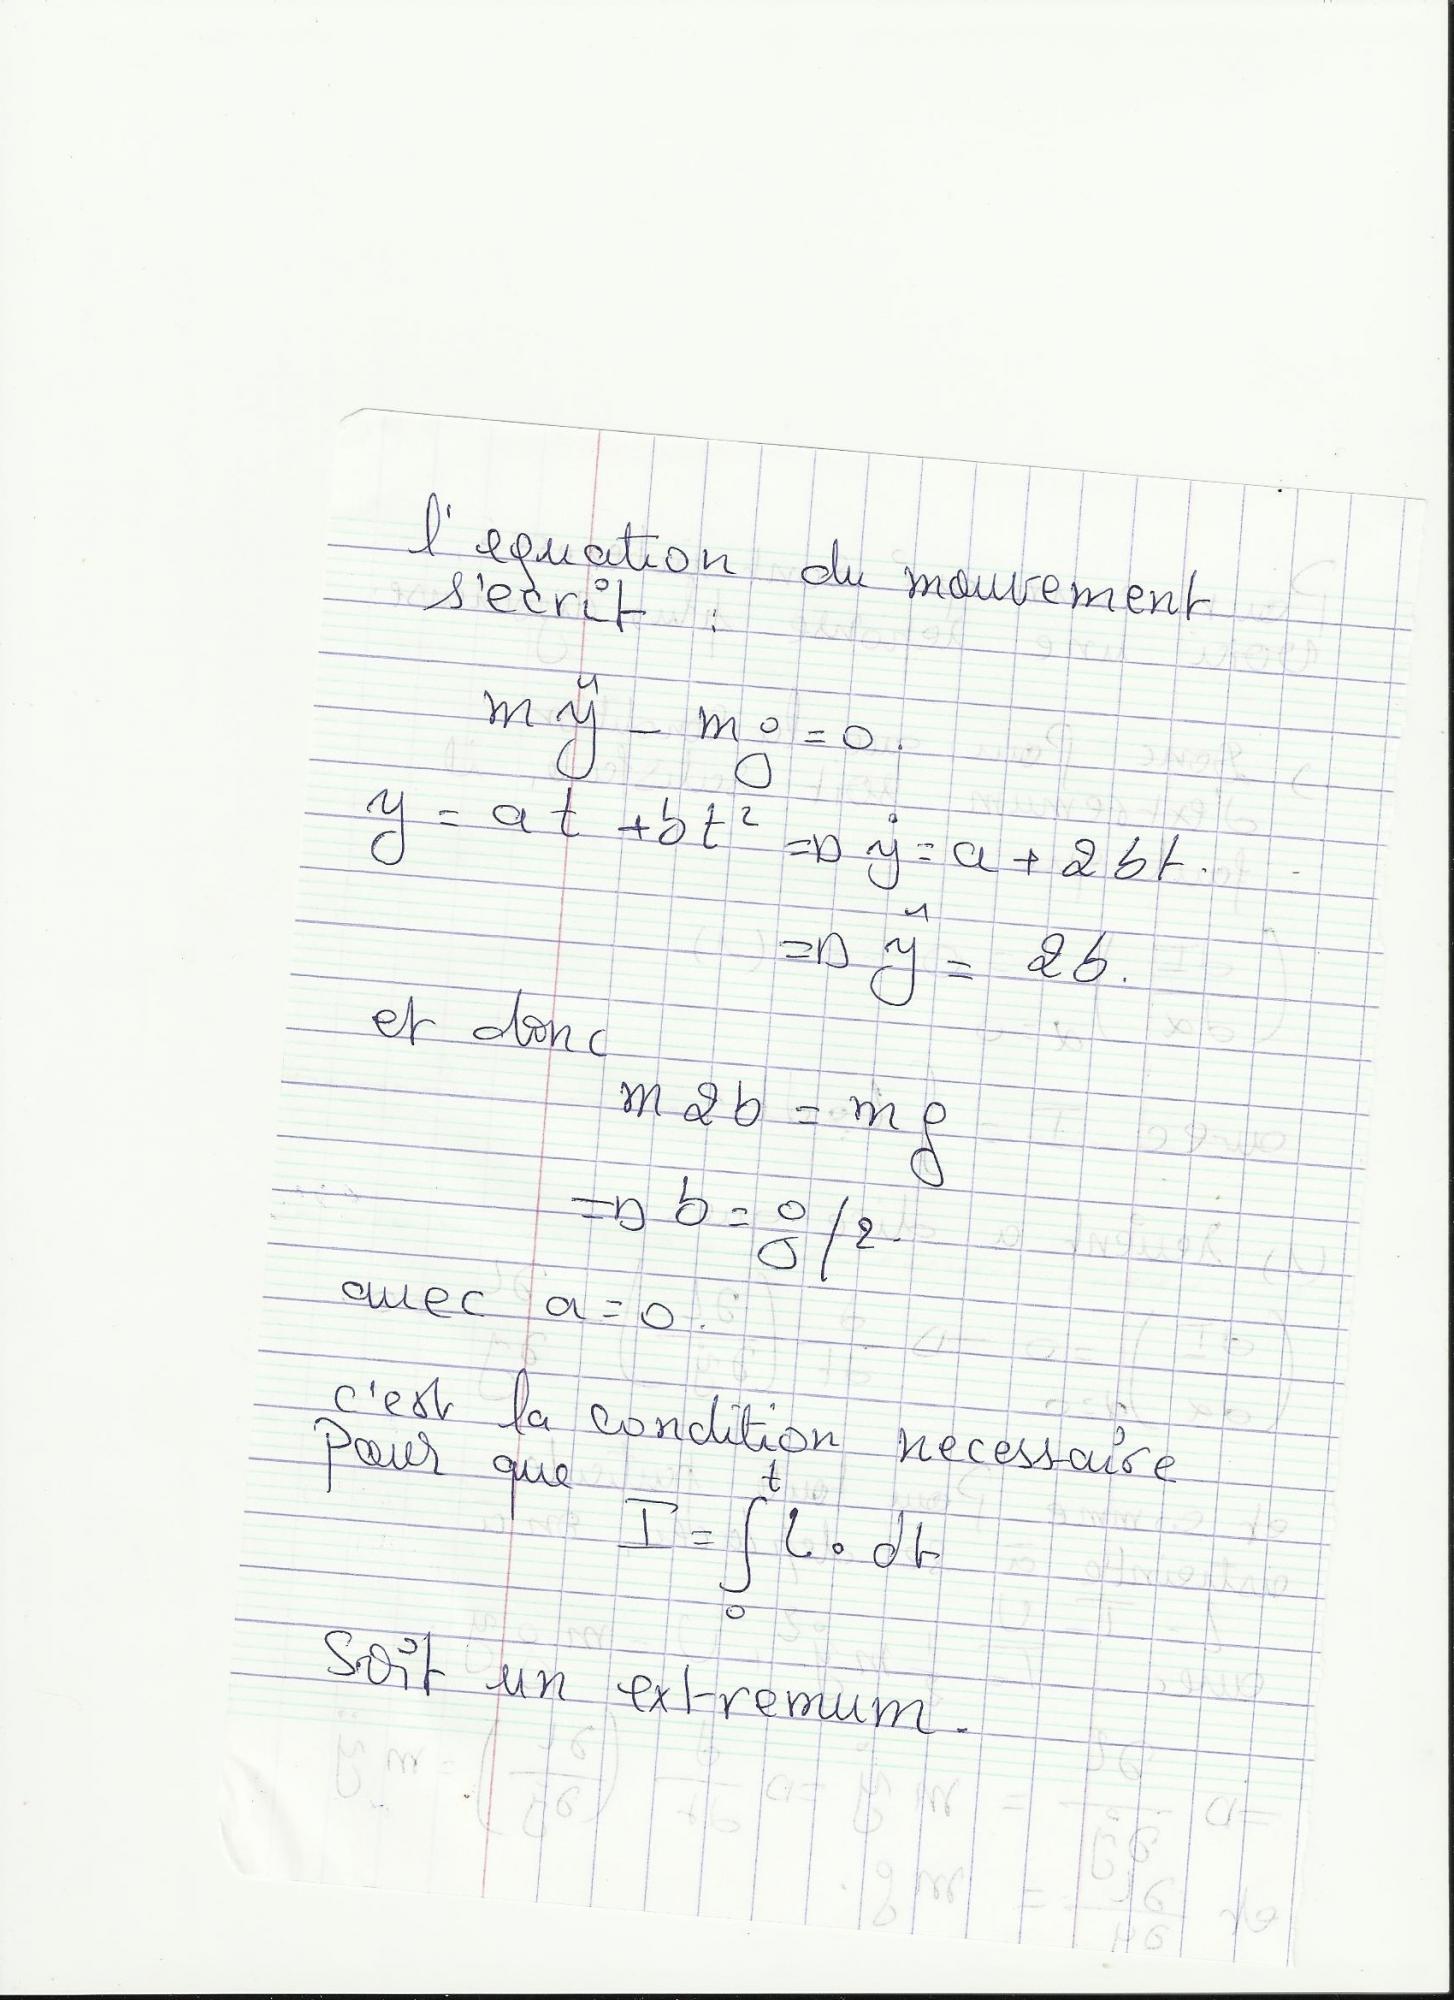 l'equation du mouvement
s'ecrit :
mÿ - mg = 0.
y = at + bt² => ẏ = a + 2bt.
=> ÿ = 2b.
et donc
m2b = mg
=> b = g/2.
avec a = 0.
c'est la condition necessaire
pour que
I = ∫₀ᵗ L. dt
soit un extremum.